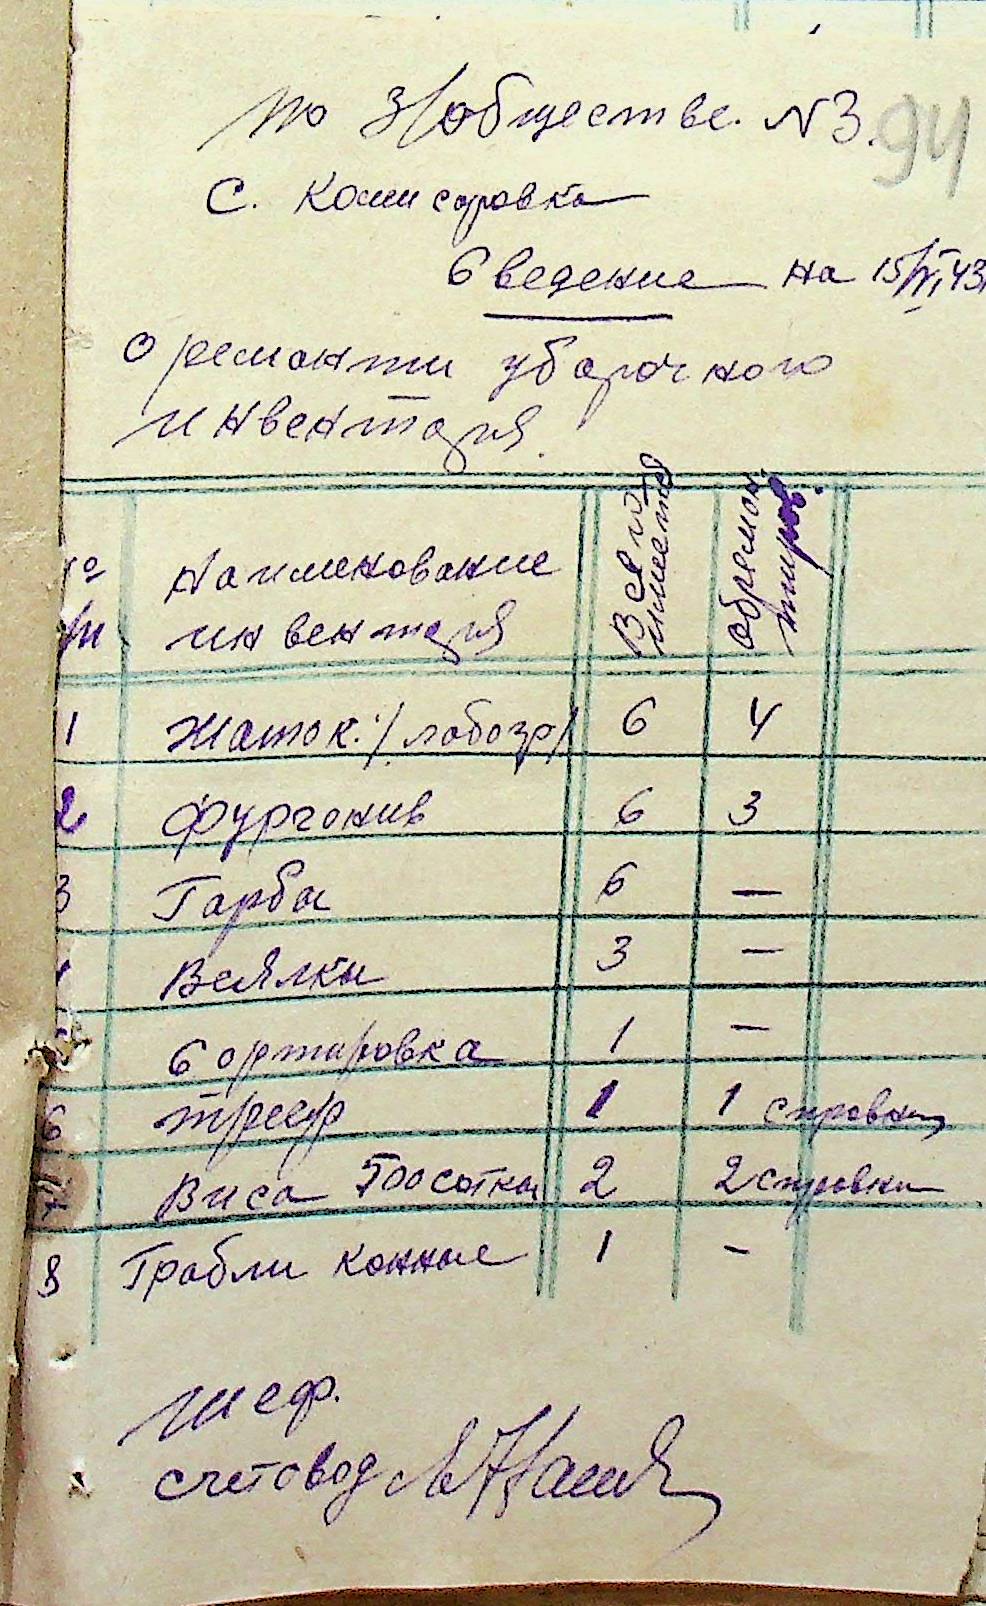 по З/обществе. N3.
94
с. Комисаровка
Сведение на 15/VI 43
о ремонти уборочного
инвентаря.
Наименование инвентаря Всего имеется Обремон тиров.
1 Жаток /лобогр/ 6 4
2 Фургонив 6 3
3 Гарбы 6 —
Веялки 3 —
Сортировка 1 —
6 Треер 1 1 справны
7 Виса 500 сотка 2 2 справни
8 Грабли конные 1 -
шеф.
счетовод